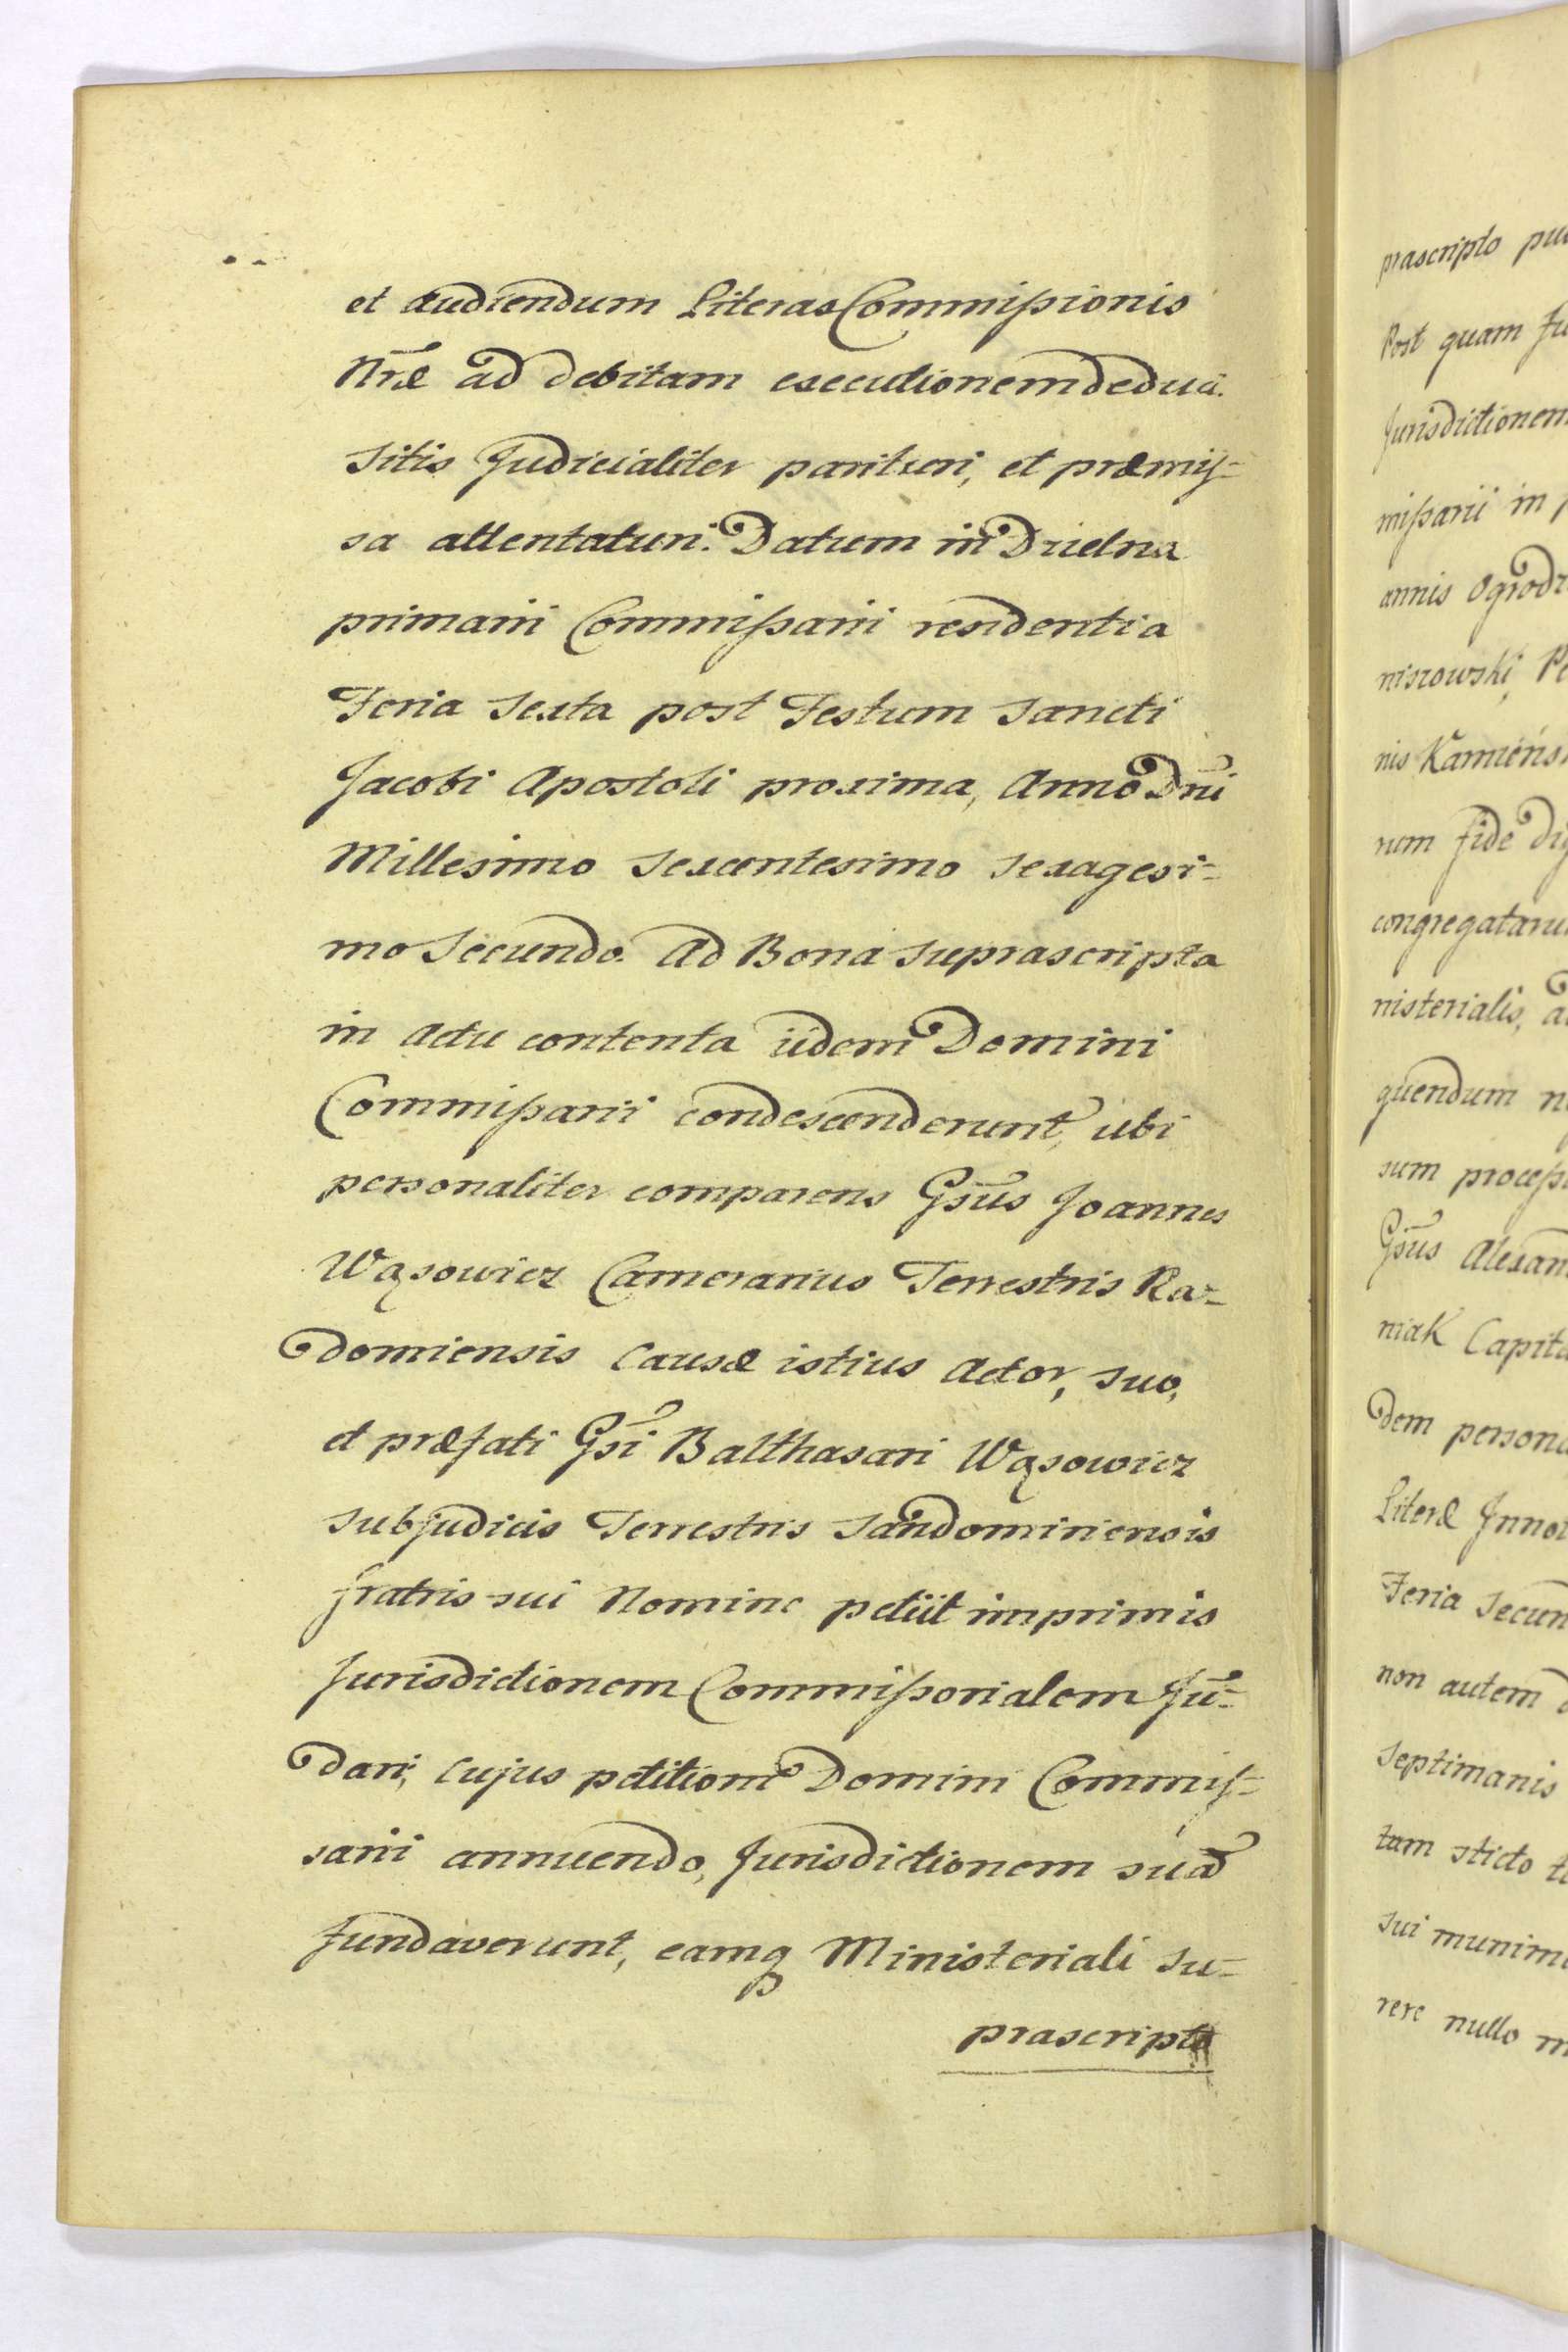 et audiendum Literas Commissionis
Nræ ad debitam executionem deduci.
Sitis Judicialiter parituri, et præmis=
sa attentaturi. Datum in Drielna
primarii Commissarii residentia
Feria Sexta post Festum Sancti
Jacobi Apostoli proxima, Anno Dni
Millesimo Sexcentesimo Sexagesi=
mo Secundo. Ad Bona suprascripta
in Actu contenta iidem Domini
Commissarii condescenderunt, ubi
personaliter comparens Gsus Joannes
Wąsowicz Camerarius Terrestris Ra=
domiensis Causæ istius Actor, suo,
et præfati Gsi Balthasari Wąsowicz
Subjudicis Terrestris Sandomiriensis
fratris sui Nomine petiit imprimis
Jurisdictionem Commissorialem fu=
dari, cujus petitioni Domini Commis=
sarii annuendo, Jurisdictionem suã
fundaverunt, eamq Ministeriali su=
prascripto
præscripto
Post quam
Jurisdictionem
missarii in
annis
niszowski,
nis
rum fide
nisterialis,
quendum
sum
Gsus
niak
dem
Literæ
Feria
non autem
Septimanis
tam sticto
sui
rere nullo